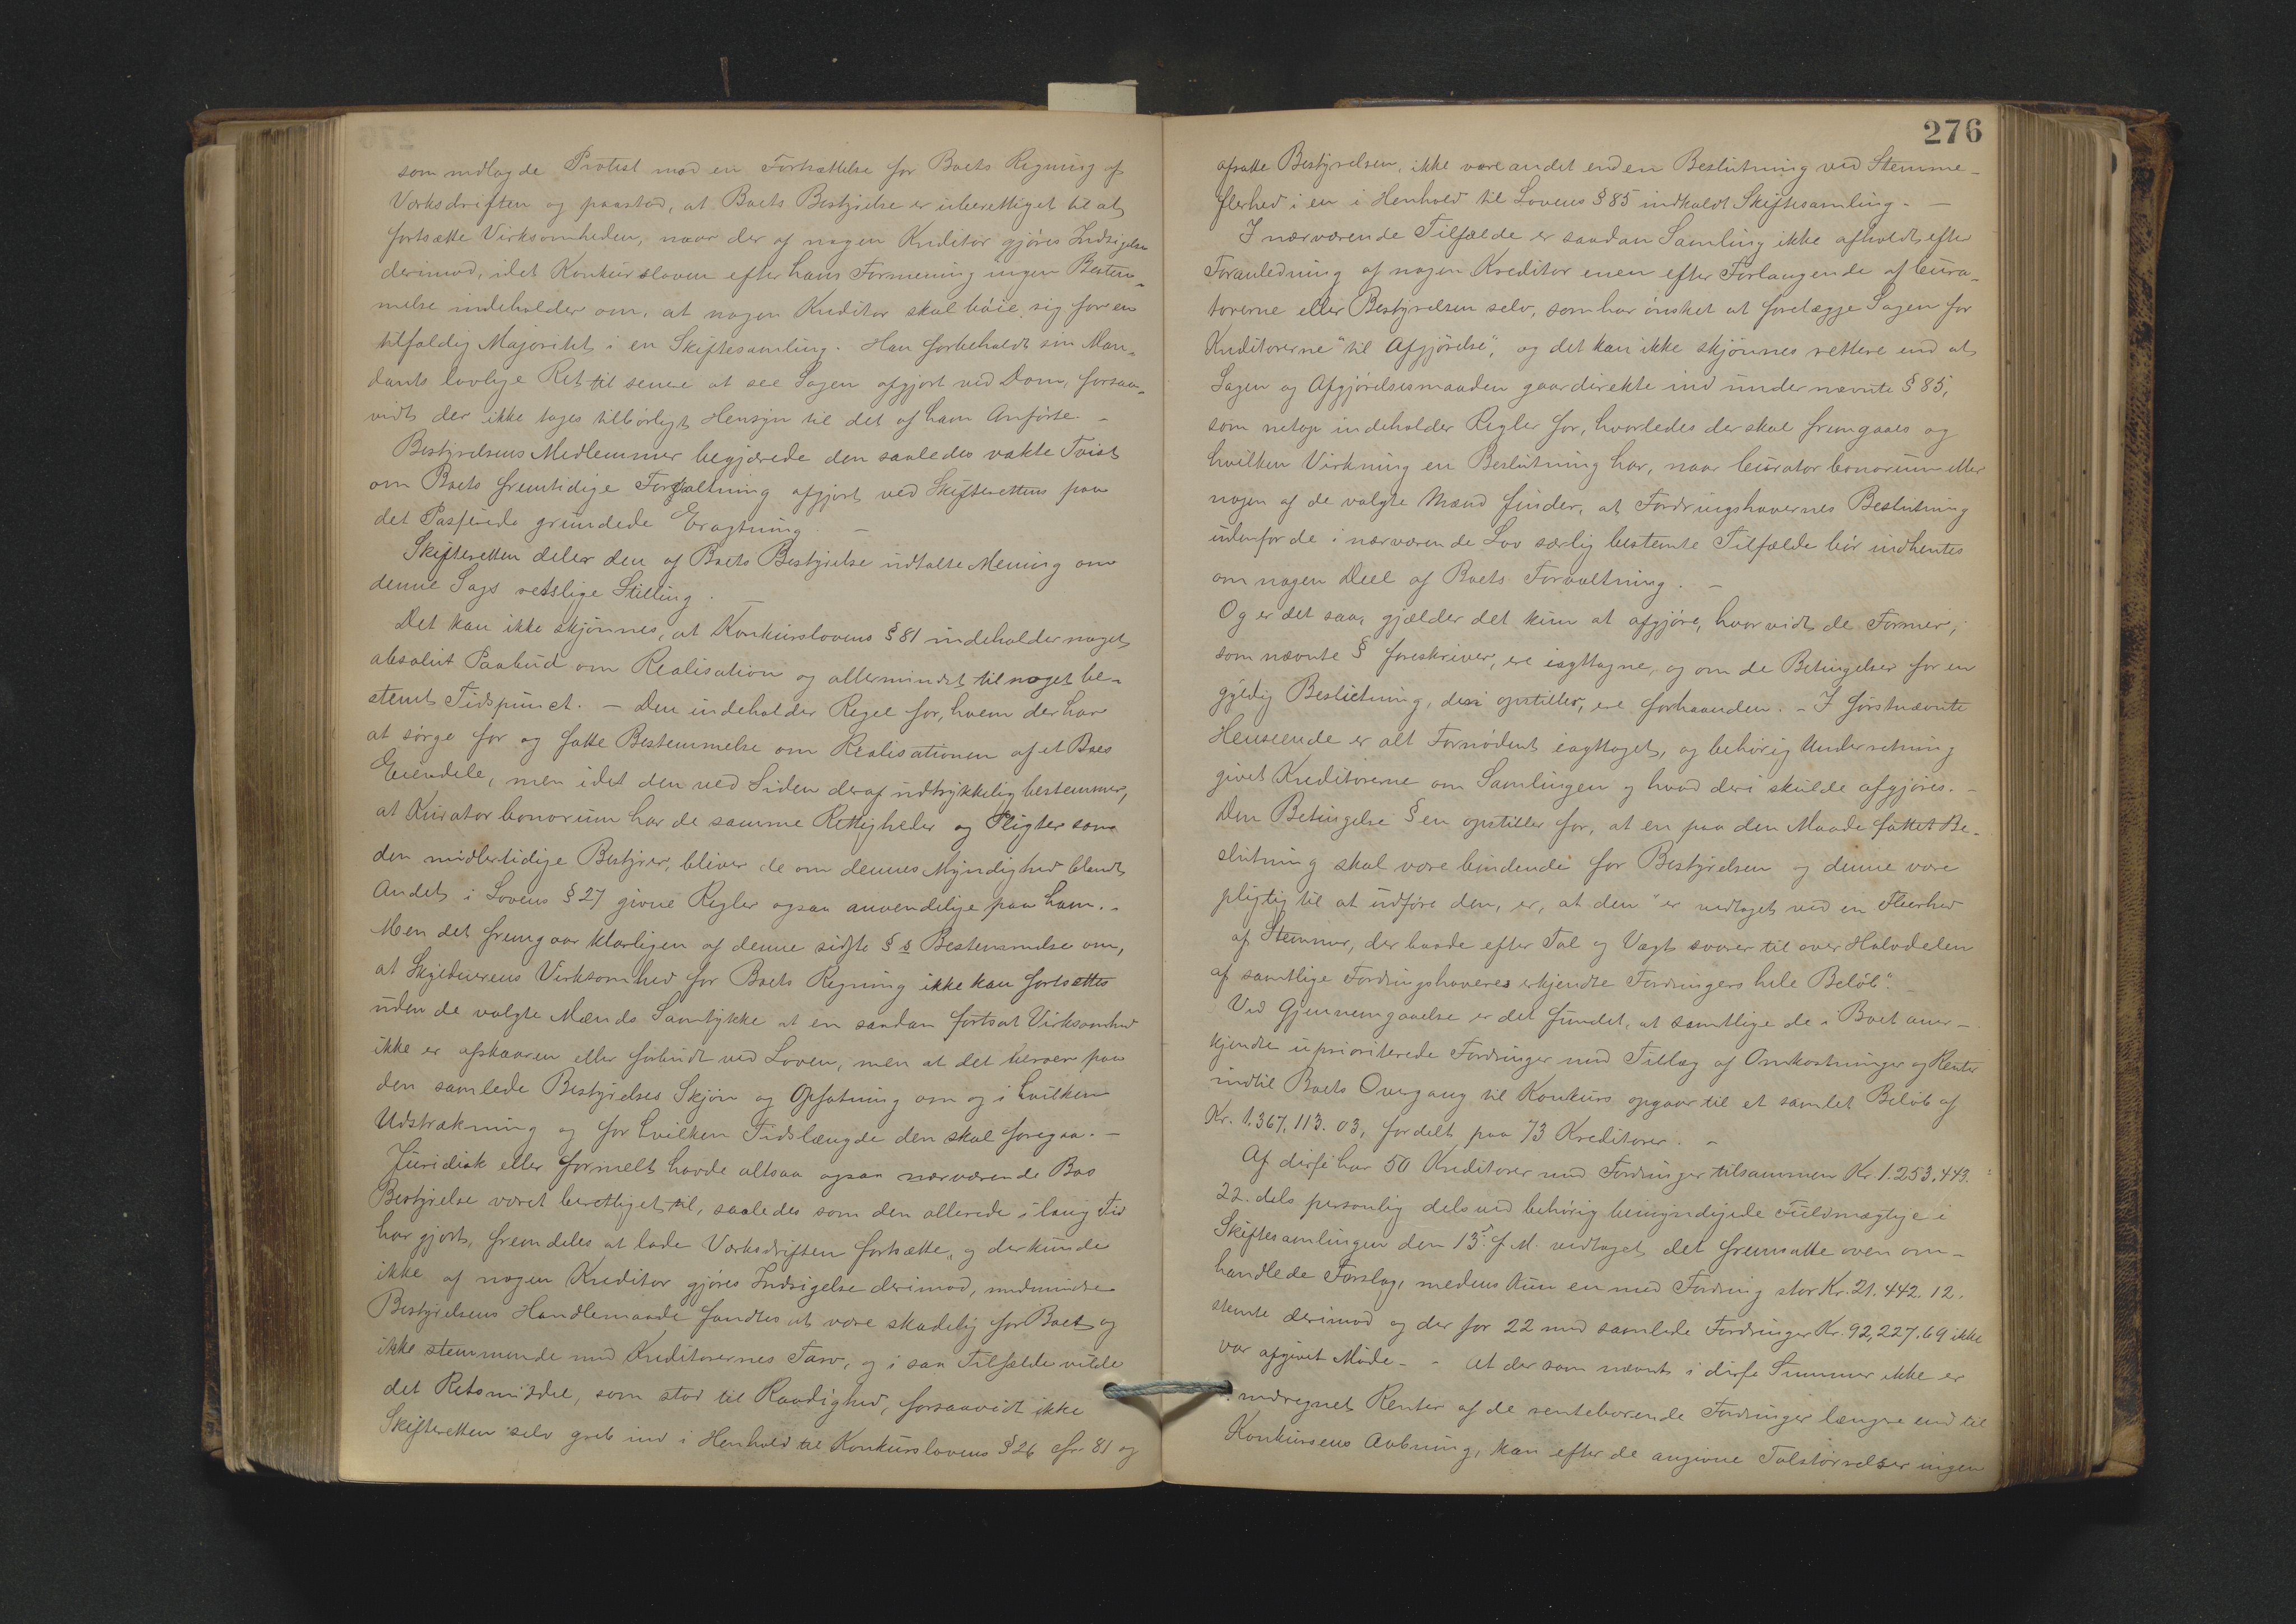 som nedlagde Protest mod en Fortsættelse for Boets Regning af
Værksdriften og paastod, at Boets Bestyrelse er uberettiget til at
fortsætte Virksomheden, naar der af nogen Kreditor gjøres Indsigelse
derimod, idet Konkursloven efter hans Formening ingen Bestem-
melse indeholder om, at nogen Kreditor skal bøie sig for en
tilfældig Majoritet i en Skiftesamling. Han forbeholdt sin Man-
dants lovlige Ret til senere at see Sagen afgjort ved Dom, forsaa-
vidt der ikke tages tilbørligt Hensyn til det af ham Anførte. -
Bestyrelsens Medlemmer begjærede den saaledes vakte Tvist
om Boets fremtidige Forvaltning afgjort ved Skifterettens paa
det Passerede grundede Eragtning. -
Skifteretten deler den af Boets Bestyrelse udtalte Mening om
denne Sags retslige Stilling. -
Det kan ikke skjønnes, at Konkurslovens § 81 indeholder noget
absolut Paabud om Realisation og allermindst til noget be-
stemt Tidspunct. - Den indeholder Regel for, hvem der har
at sørge for og fatte Bestemmelse om Realisationen af et Boes
Eiendele, men idet den ved Siden deraf udtrykkelig bestemmer,
at Kurator bonorum har de samme Rettigheder og Pligter som
den midlertidige Bestyrer, bliver de om dennes Myndighed blandt
Andet i Lovens § 27 givne Regler ogsaa anvendelige paa ham. -
Men det fremgaar klarligen af denne sidste § s Bestemmelse om,
at Skyldnerens Virksomhed for Boets Regning ikke kan fortsættes
uden de valgte Mænds Samtykke at en saadan fortsat Virksomhed
ikke er afskaaren eller forbudt ved Loven, men at det beroer paa
den samlede Bestyrelses Skjøn og Opfatning om og i hvilken
Udstrækning og for hvilken Tidslængde den skal foregaa. -
Juridisk eller formelt havde altsaa ogsaa nærværende Bos
Bestyrelse været berettiget til, saaledes som den allerede i lang Tid
har gjort, fremdeles at lade Værksdriften fortsætte, og der kunde
ikke af nogen Kreditor gjøres Indsigelse derimod, medmindre
Bestyrelsens Handlemaade fandtes at være skadelig for Boet og
ikke stemmende med Kreditorernes Tarv, og i saa Tilfælde vilde
det Retsmiddel, som stod til Raadighed, forsaavidt ikke
Skifteretten selv greb ind i Henhold til Konkurslovens § 26 cfr. 81 og
276
afsatte Bestyrelsen, ikke være andet end en Beslutning ved Stemme-
flerhed i en i Henhold til Lovens § 85 indkaldt Skiftesamling. -
I nærværende Tilfælde er saadan Samling ikke afholdt efter
Foranledning af nogen Kreditor men efter Forlangende af Cura-
torerne eller Bestyrelsen selv, som har ønsket at forelægge Sagen for
Kreditorerne "til Afgjørelse", og det kan ikke skjønnes rettere end at
Sagen og Afgjørelsesmaaden gaar direkte ind under nævnte § 85,
som netop indeholder Regler for, hvorledes der skal fremgaaes og
hvilken Virkning en Beslutning har, naar Curator bonorum eller
nogen af de valgte Mænd finder, at Fordringshavernes Beslutning
udenfor de i nærværende Lov særlig bestemte Tilfælde bør indhentes
om nogen Deel af Boets Forvaltning. -
Og er det saa, gjælder det kun at afgjøre, hvorvidt de Former,
som nævnte § foreskriver, ere iagttagne, og om de Betingelser for en
gyldig Beslutning, den opstiller, ere forhaanden. - I førstnævnte
Henseende er alt Fornødent iagttaget, og behørig Underretning
givet Kreditorerne om Samlingen og hvad deri skulde afgjøres. -
Den Betingelse §en opstiller for, at en paa den Maade fattet Be-
slutning skal være bindende for Bestyrelsen og denne være
pligtig til at udføre den, er, at den "er vedtaget ved en Fleerhed
af Stemmer, der baade efter Tal og Vægt svarer til over Halvdelen
af samtlige Fordringshaveres erkjendte Fordringers hele Beløb".
Ved Gjennemgaaelse er det fundet, at samtlige de i Boet aner-
kjendte uprioriterede Fordringer med Tillæg af Omkostninger og Renter
indtil Boets Overgang til Konkurs opgaar til et samlet Beløb af
Kr. 1,367,113.03, fordelt paa 73 Kreditorer. -
Af disse har 50 Kreditorer med Fordringer tilsammen Kr. 1.253.443.
22. dels personlig dels ved behørig bemyndigede Fuldmægtige i
Skiftesamlingen den 13. f. M. vedtaget det fremsatte ovenom-
handlede Forslag, medens kun en med Fordring stor Kr. 21.442.12.
stemte derimod og der for 22 med samlede Fordringer Kr. 92,227.69 ikke
var afgivet Møde. - At der som nævnt i disse Summer ikke er
medregnet Renter af de rentebærende Fordringer længre end til
Konkursens Aabning, kan efter de angivne Talstørrelser ingen